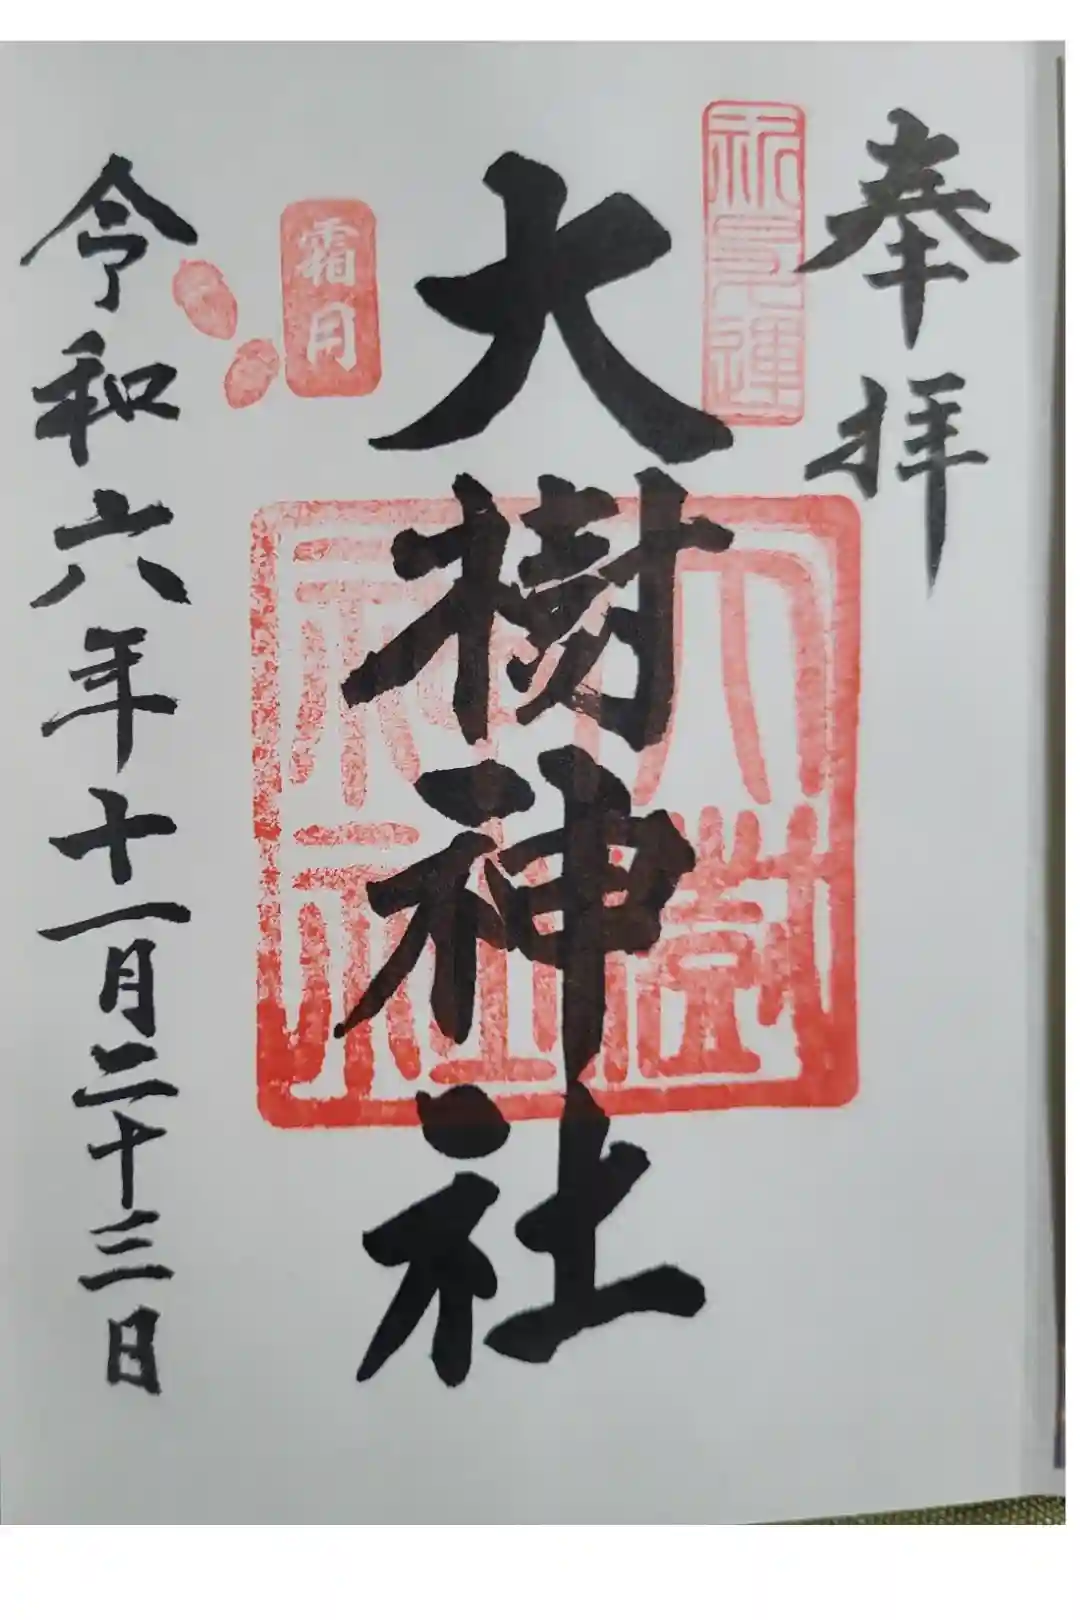 奉拝
祈長久運
大樹神社
大樹神社
霜月
令和六年十一月二十三日